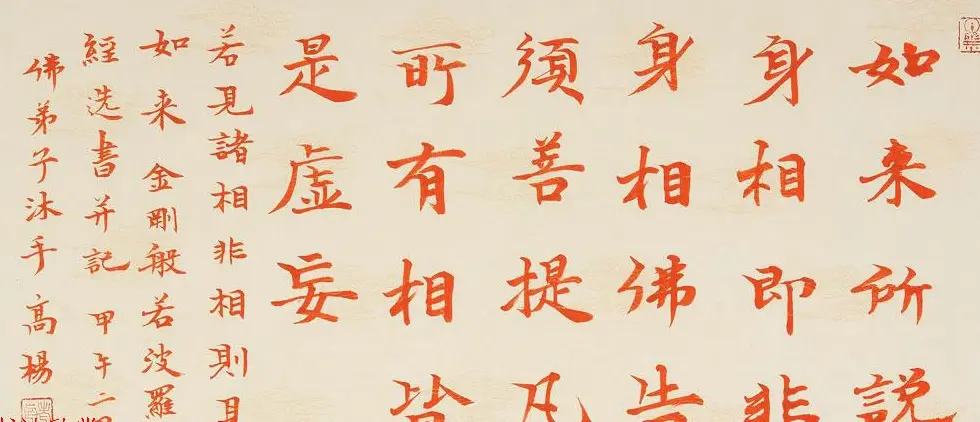 如来所説
身相即非
身相佛告
須善提凡
所有相皆
是虚妄
若見諸相非相則見
如来金剛般若波羅
經选書并記甲午二
佛弟子沐手高楊